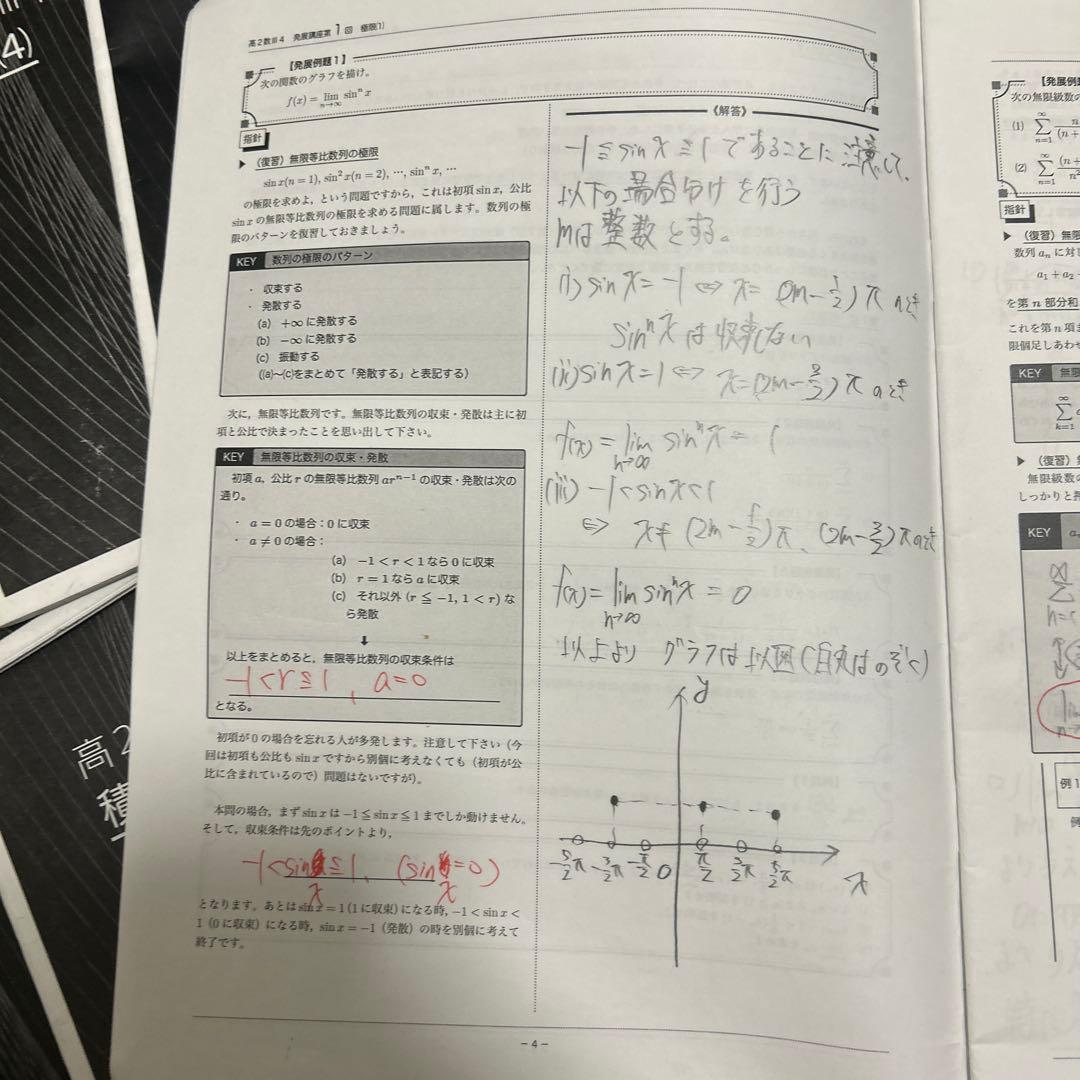 4)
高2
積
高2数Ⅲ4 発展講座第1回 極限(1)
【発展例題1】
次の関数のグラフを描け。
f(x) = lim n→∞ sinⁿ x
指針
▶ (復習) 無限等比数列の極限
sin x(n = 1), sin² x(n = 2), …, sinⁿ x, …
の極限を求めよ、という問題ですから、これは初項 sin x, 公比
sin x の無限等比数列の極限を求める問題に属します。数列の極
限のパターンを復習しておきましょう。
KEY 数列の極限のパターン
・ 収束する
・ 発散する
(a) +∞ に発散する
(b) −∞ に発散する
(c) 振動する
((a)~(c)をまとめて「発散する」と表記する)
次に, 無限等比数列です。無限等比数列の収束・発散は主に初
項と公比で決まったことを思い出して下さい。
KEY 無限等比数列の収束・発散
初項 a, 公比 r の無限等比数列 arⁿ⁻¹ の収束・発散は次の
通り。
・ a = 0 の場合：0 に収束
・ a ≠ 0 の場合：
(a) −1 < r < 1 なら 0 に収束
(b) r = 1 なら a に収束
(c) それ以外 (r ≦ −1, 1 < r) な
ら発散
⬇
以上をまとめると, 無限等比数列の収束条件は
-1<r≦1, a=0
となる。
初項が 0 の場合を忘れる人が多発します。注意して下さい (今
回は初項も公比も sin x ですから別個に考えなくても (初項が公
比に含まれているので) 問題はないですが)。
本問の場合, まず sin x は −1 ≦ sin x ≦ 1 までしか動けません。
そして, 収束条件は先のポイントより,
-1<sin x≦1, (sin x=0)
となります。あとは sin x = 1 (1 に収束) になる時, −1 < sin x <
1 (0 に収束) になる時, sin x = −1 (発散) の時を別個に考えて
終了です。
《解答》
-1≦sin x≦1であることに注意して、
以下の場合分けを行う
mは整数とする。
(i) sin x = -1 ⇔ x = (2m - 1/2)π のとき
sinⁿx は収束しない
(ii) sin x = 1 ⇔ x = (2m - 3/2)π のとき
f(x) = lim n→∞ sinⁿx = 1
(iii) -1 < sin x < 1
⇔ x ≠ (2m - 1/2)π、(2m - 3/2)π のとき
f(x) = lim n→∞ sinⁿx = 0
以上より グラフは以図(白丸はのぞく)
y
-5/2π -3/2π -π/2 O π/2 3/2π 5/2π
x
− 4 −
【発展例題
次の無限級数の
(1) ∞ Σ n=1
(2) ∞ Σ n=1
指針
▶ (復習) 無限
数列 aₙ に対
a₁ + a₂
を第 n 部分和
これを第 n 項ま
限個足しあわせ
KEY 無限
∞ Σ k=1
▶ (復習) 無
無限級数の
しっかりと押
KEY
∞ Σ
lim
例1
例